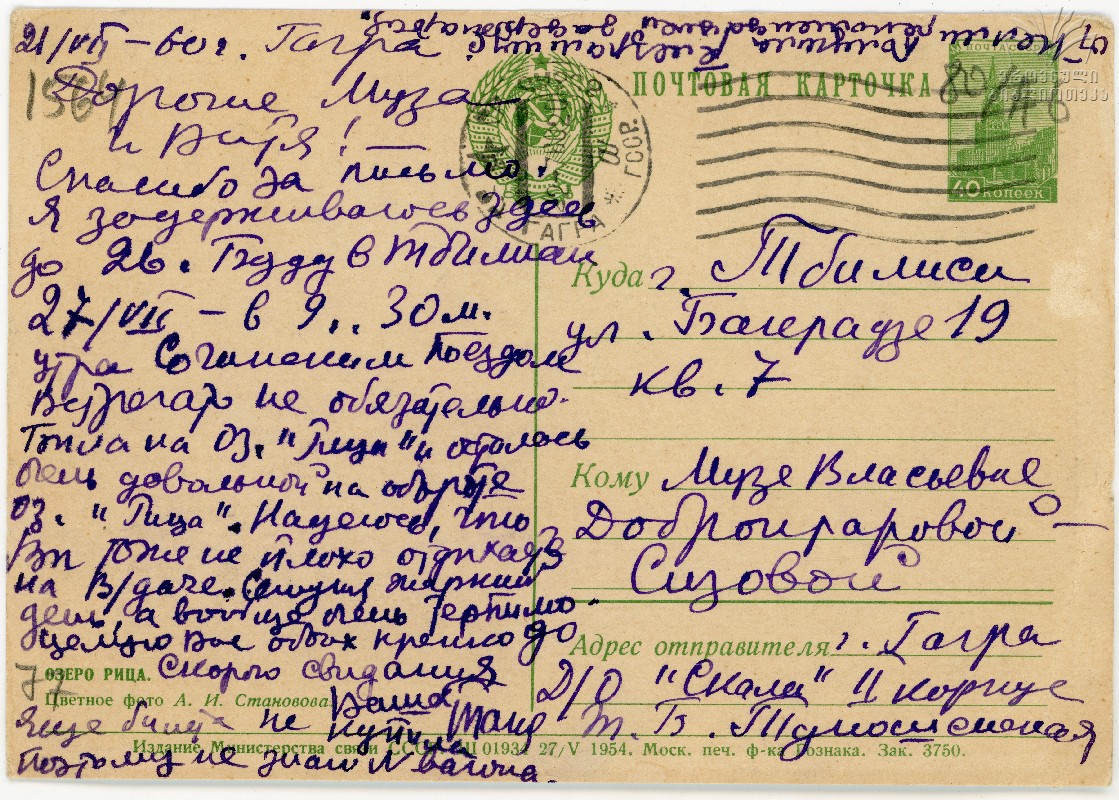 21/VII – 60 г. Гагра
Дорогие Муза
и Витя!
Спасибо за письмо.
Я задерживаюсь здесь
до 26. Буду в Тбилиси
27/VII – в 9.. 30 м.
утра Сочинским поездом
Встречать не обязательно.
на оз. "Рица" и осталась
очень довольной на обороте
оз. "Рица". Надеюсь, что
Вы тоже не плохо
на В/даче. жаркий
день, а вообще очень терпимо.
целую Вас обоих крепко до
скорого свидания
Ваша
Таня
Еще билета не купила
поэтому не знаю N вагона.
ОЗЕРО РИЦА.
Цветное фото А. И. Становова
1564
77
ПОЧТОВАЯ КАРТОЧКА
ПОЧТА СССР
40 КОПЕЕК
ГАГРА
ГССР
ეროვნული
ბიბლიოთეკა
Куда г. Тбилиси
ул. Бакрадзе 19
кв. 7
Кому Музе Власьевне
Доброхраровой –
Сизовой
Адрес отправителя г. Гагра
Д/О "Скала" II корпус
Т. В.
Издание Министерства связи СССР. 01934 27/V 1954. Моск. печ. ф-ка Гознака. Зак. 3750.